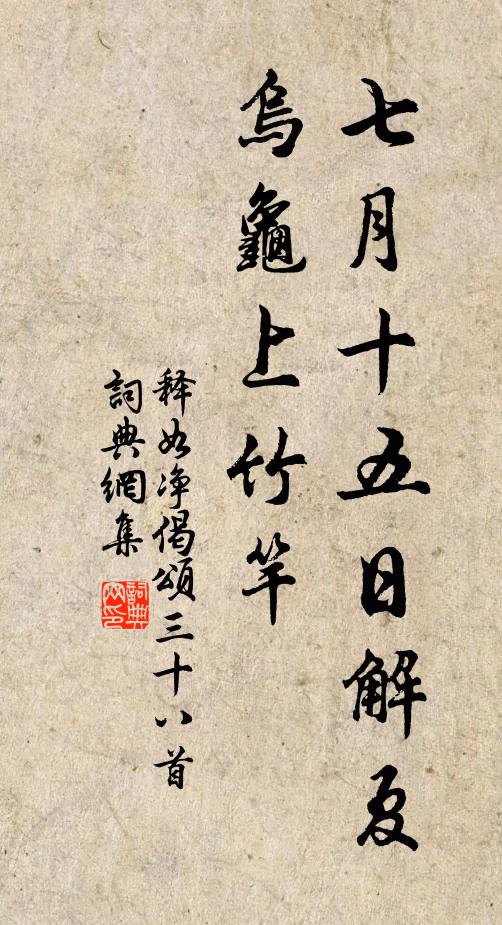 七月十五日解夏
烏龜上竹竿
释如净偈頌三十八首
詞典網集
詞典网印